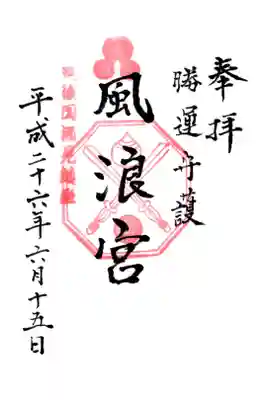 奉拝
勝運守護
風浪宮
平成二十六年六月十五日